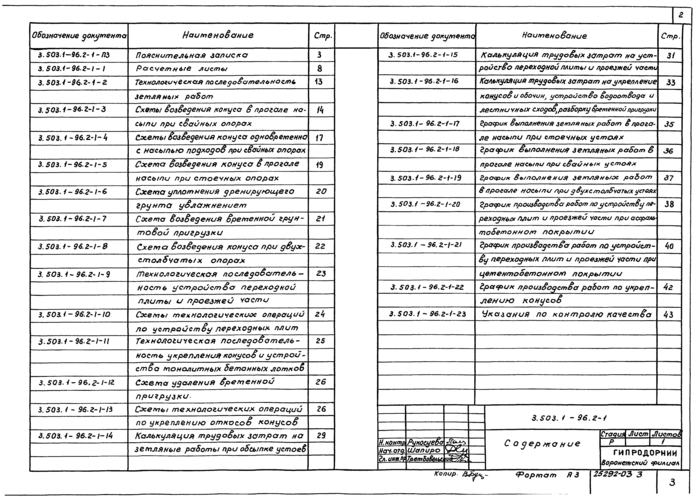 2
Обозначение документа Наименование Стр.
3.503.1-96.2-1-ПЗ Пояснительная записка 3
3.503.1-96.2-1-1 Расчетные листы 8
3.503.1-96.2-1-2 Технологическая последовательность 13
земляных работ
3.503.1-96.2-1-3 Схемы возведения конуса в прогале на- 14
сыпи при свайных опорах
3.503.1-96.2-1-4 Схемы возведения конуса одновременно 17
с насыпью подходов при свайных опорах
3.503.1-96.2-1-5 Схема возведения конуса в прогале 19
насыпи при стоечных опорах
3.503.1-96.2-1-6 Схема уплотнения дренирующего 20
грунта увлажнением
3.503.1-96.2-1-7 Схема возведения временной грун- 21
товой пригрузки
3.503.1-96.2-1-8 Схема возведения конуса при двух- 22
столбчатых опорах
3.503.1-96.2-1-9 Технологическая последователь- 23
ность устройства переходной
плиты и проезжей части
3.503.1-96.2-1-10 Схемы технологических операций 24
по устройству переходных плит
3.503.1-96.2-1-11 Технологическая последователь- 25
ность укрепления конусов и устрой-
ства монолитных бетонных лотков
3.503.1-96.2-1-12 Схема удаления временной 26
пригрузки.
3.503.1-96.2-1-13 Схемы технологических операций 26
по укреплению откосов конусов
3.503.1-96.2-1-14 Калькуляция трудовых затрат на 29
земляные работы при обсыпке устоев
Обозначение документа Наименование Стр.
3.503.1-96.2-1-15 Калькуляция трудовых затрат на уст- 31
ройство переходной плиты и проезжей части
3.503.1-96.2-1-16 Калькуляция трудовых затрат на укрепление 33
конусов и обочин, устройство водоотвода и
лестничных сходов, разборку временной пригрузки
3.503.1-96.2-1-17 График выполнения земляных работ в прога- 35
ле насыпи при стоечных устоях
3.503.1-96.2-1-18 График выполнения земляных работ в 36
прогале насыпи при свайных устоях
3.503.1-96.2-1-19 График выполнения земляных работ 37
в прогале насыпи при двухстолбчатых устоях
3.503.1-96.2-1-20 График производства работ по устройству пе- 38
реходных плит и проезжей части при асфаль-
тобетонном покрытии
3.503.1-96.2-1-21 График производства работ по устройст- 40
ву переходных плит и проезжей части при
цементобетонном покрытии
3.503.1-96.2-1-22 График производства работ по укреп- 42
лению конусов
3.503.1-96.2-1-23 Указания по контролю качества 43
3.503.1-96.2-1
Содержание
Стадия Лист Листов
Р 1
ГИПРОДОРНИИ
Воронежский филиал
Н.контр. Рукосуева
Нач.отд. Шапиро
Гл.инж.пр.
Копир.
Формат А3
25292-03 3
3